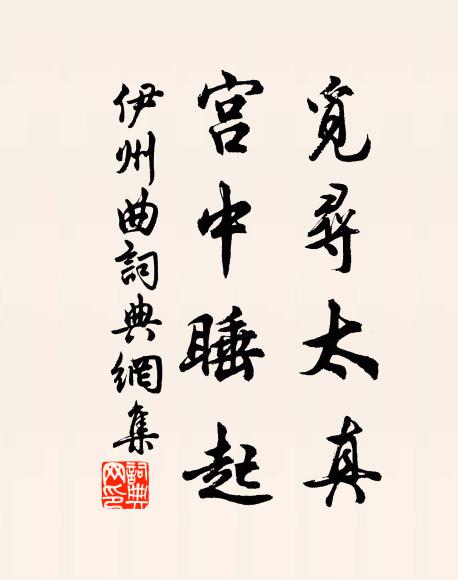 覓尋太真
宮中睡起
伊州曲詞典網集
詞典网印